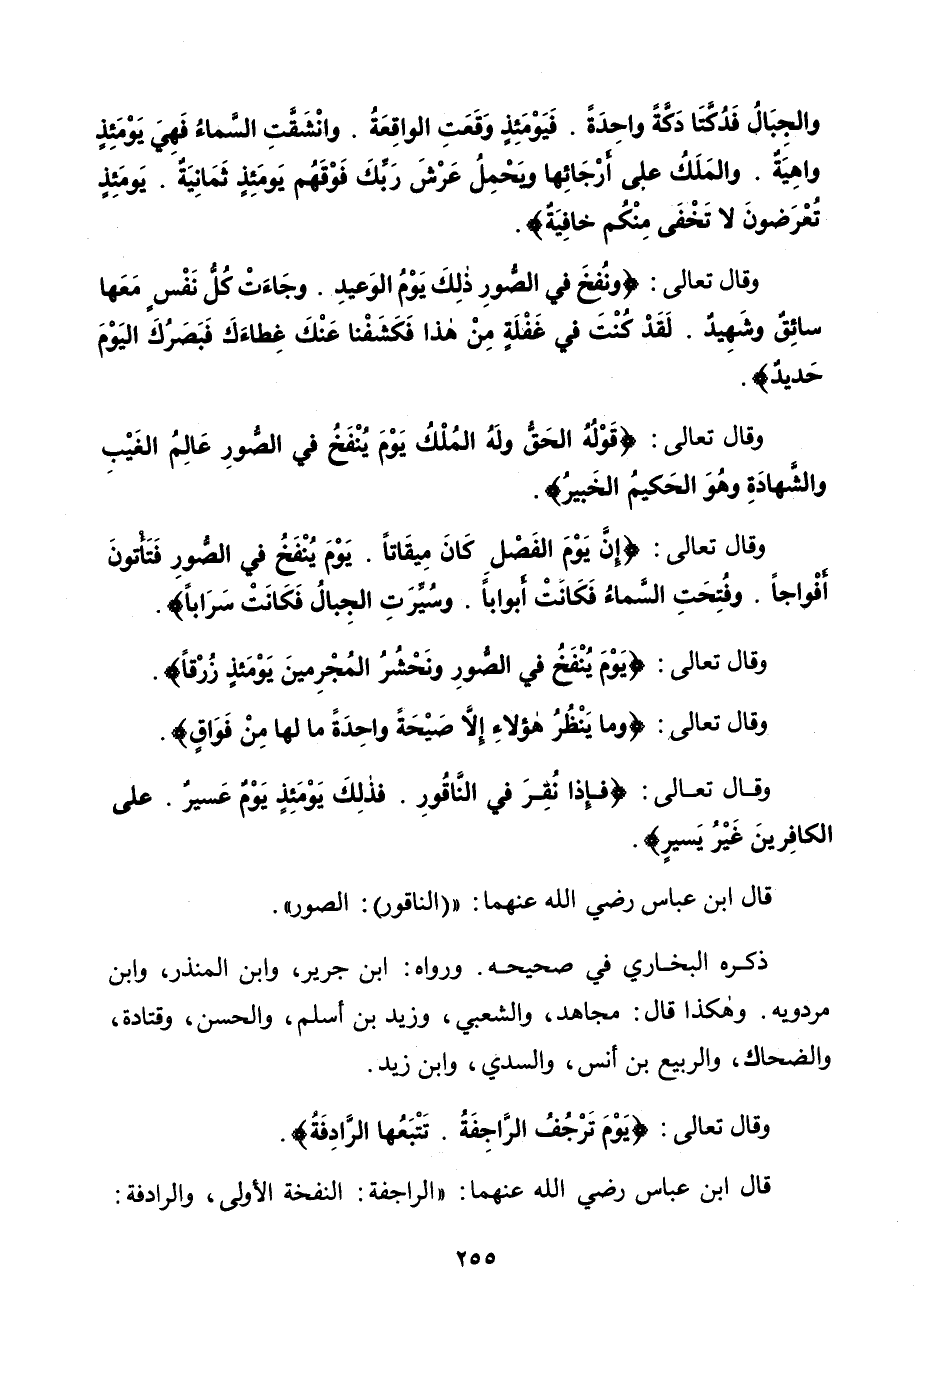 والجِبَالُ فَدُكَّتَا دَكَّةً واحِدَةً . فَيَوْمَئِذٍ وَقَعَتِ الواقِعَةُ . وانْشَقَّتِ السَّماءُ فَهِيَ يَوْمَئِذٍ
واهِيَةٌ . والمَلَكُ على أَرْجَائِها ويَحْمِلُ عَرْشَ رَبِّكَ فَوْقَهُم يَومَئِذٍ ثَمَانِيَةٌ . يَومَئِذٍ
تُعْرَضونَ لا تَخْفَى مِنْكُم خافِيَةٌ﴾ .
وقال تعالى : ﴿ونُفِخَ في الصُّورِ ذٰلِكَ يَوْمُ الوَعيدِ . وجَاءَتْ كُلُّ نَفْسٍ مَعَها
سائِقٌ وشَهِيدٌ . لَقَدْ كُنْتَ في غَفْلَةٍ مِنْ هٰذا فَكَشَفْنا عَنْكَ غِطاءَكَ فَبَصَرُكَ اليَوْمَ
حَديدٌ﴾ .
وقال تعالى : ﴿قَوْلُهُ الحَقُّ ولَهُ المُلْكُ يَوْمَ يُنْفَخُ في الصُّورِ عَالِمُ الغَيْبِ
والشَّهادَةِ وهُوَ الحَكيمُ الخَبيرُ﴾ .
وقال تعالى : ﴿إِنَّ يَوْمَ الفَصْلِ كَانَ مِيقَاتاً . يَوْمَ يُنْفَخُ في الصُّورِ فَتَأْتونَ
أَفْواجاً . وفُتِحَتِ السَّماءُ فَكَانَتْ أَبواباً . وسُيِّرَتِ الجِبالُ فَكَانَتْ سَرَاباً﴾ .
وقال تعالى : ﴿يَوْمَ يُنْفَخُ في الصُّورِ ونَحْشُرُ المُجْرِمينَ يَوْمَئذٍ زُرْقاً﴾ .
وقال تعالى : ﴿وما يَنْظُرُ هٰؤلاءِ إِلَّا صَيْحَةً واحِدَةً ما لها مِنْ فَوَاقٍ﴾ .
وقـال تعـالى : ﴿فـإِذا نُقِـرَ في النَّاقُورِ . فذٰلِكَ يَوْمَئِذٍ يَوْمٌ عَسيرٌ . على
الكافِرينَ غَيْرُ يَسيرٍ﴾ .
قال ابن عباس رضي الله عنهما : «(الناقور) : الصور» .
ذكـره البخـاري في صحيحـه . ورواه : ابن جرير، وابن المنذر، وابن
مردويه . وهٰكذا قال : مجاهد، والشعبي، وزيد بن أسلم، والحسن، وقتادة،
والضحاك، والربيع بن أنس، والسدي، وابن زيد .
وقال تعالى : ﴿يَوْمَ تَرْجُفُ الرَّاجِفَةُ . تَتْبَعُها الرَّادِفَةُ﴾ .
قال ابن عباس رضي الله عنهما : «الراجفة : النفخة الأولى، والرادفة :
٢٥٥